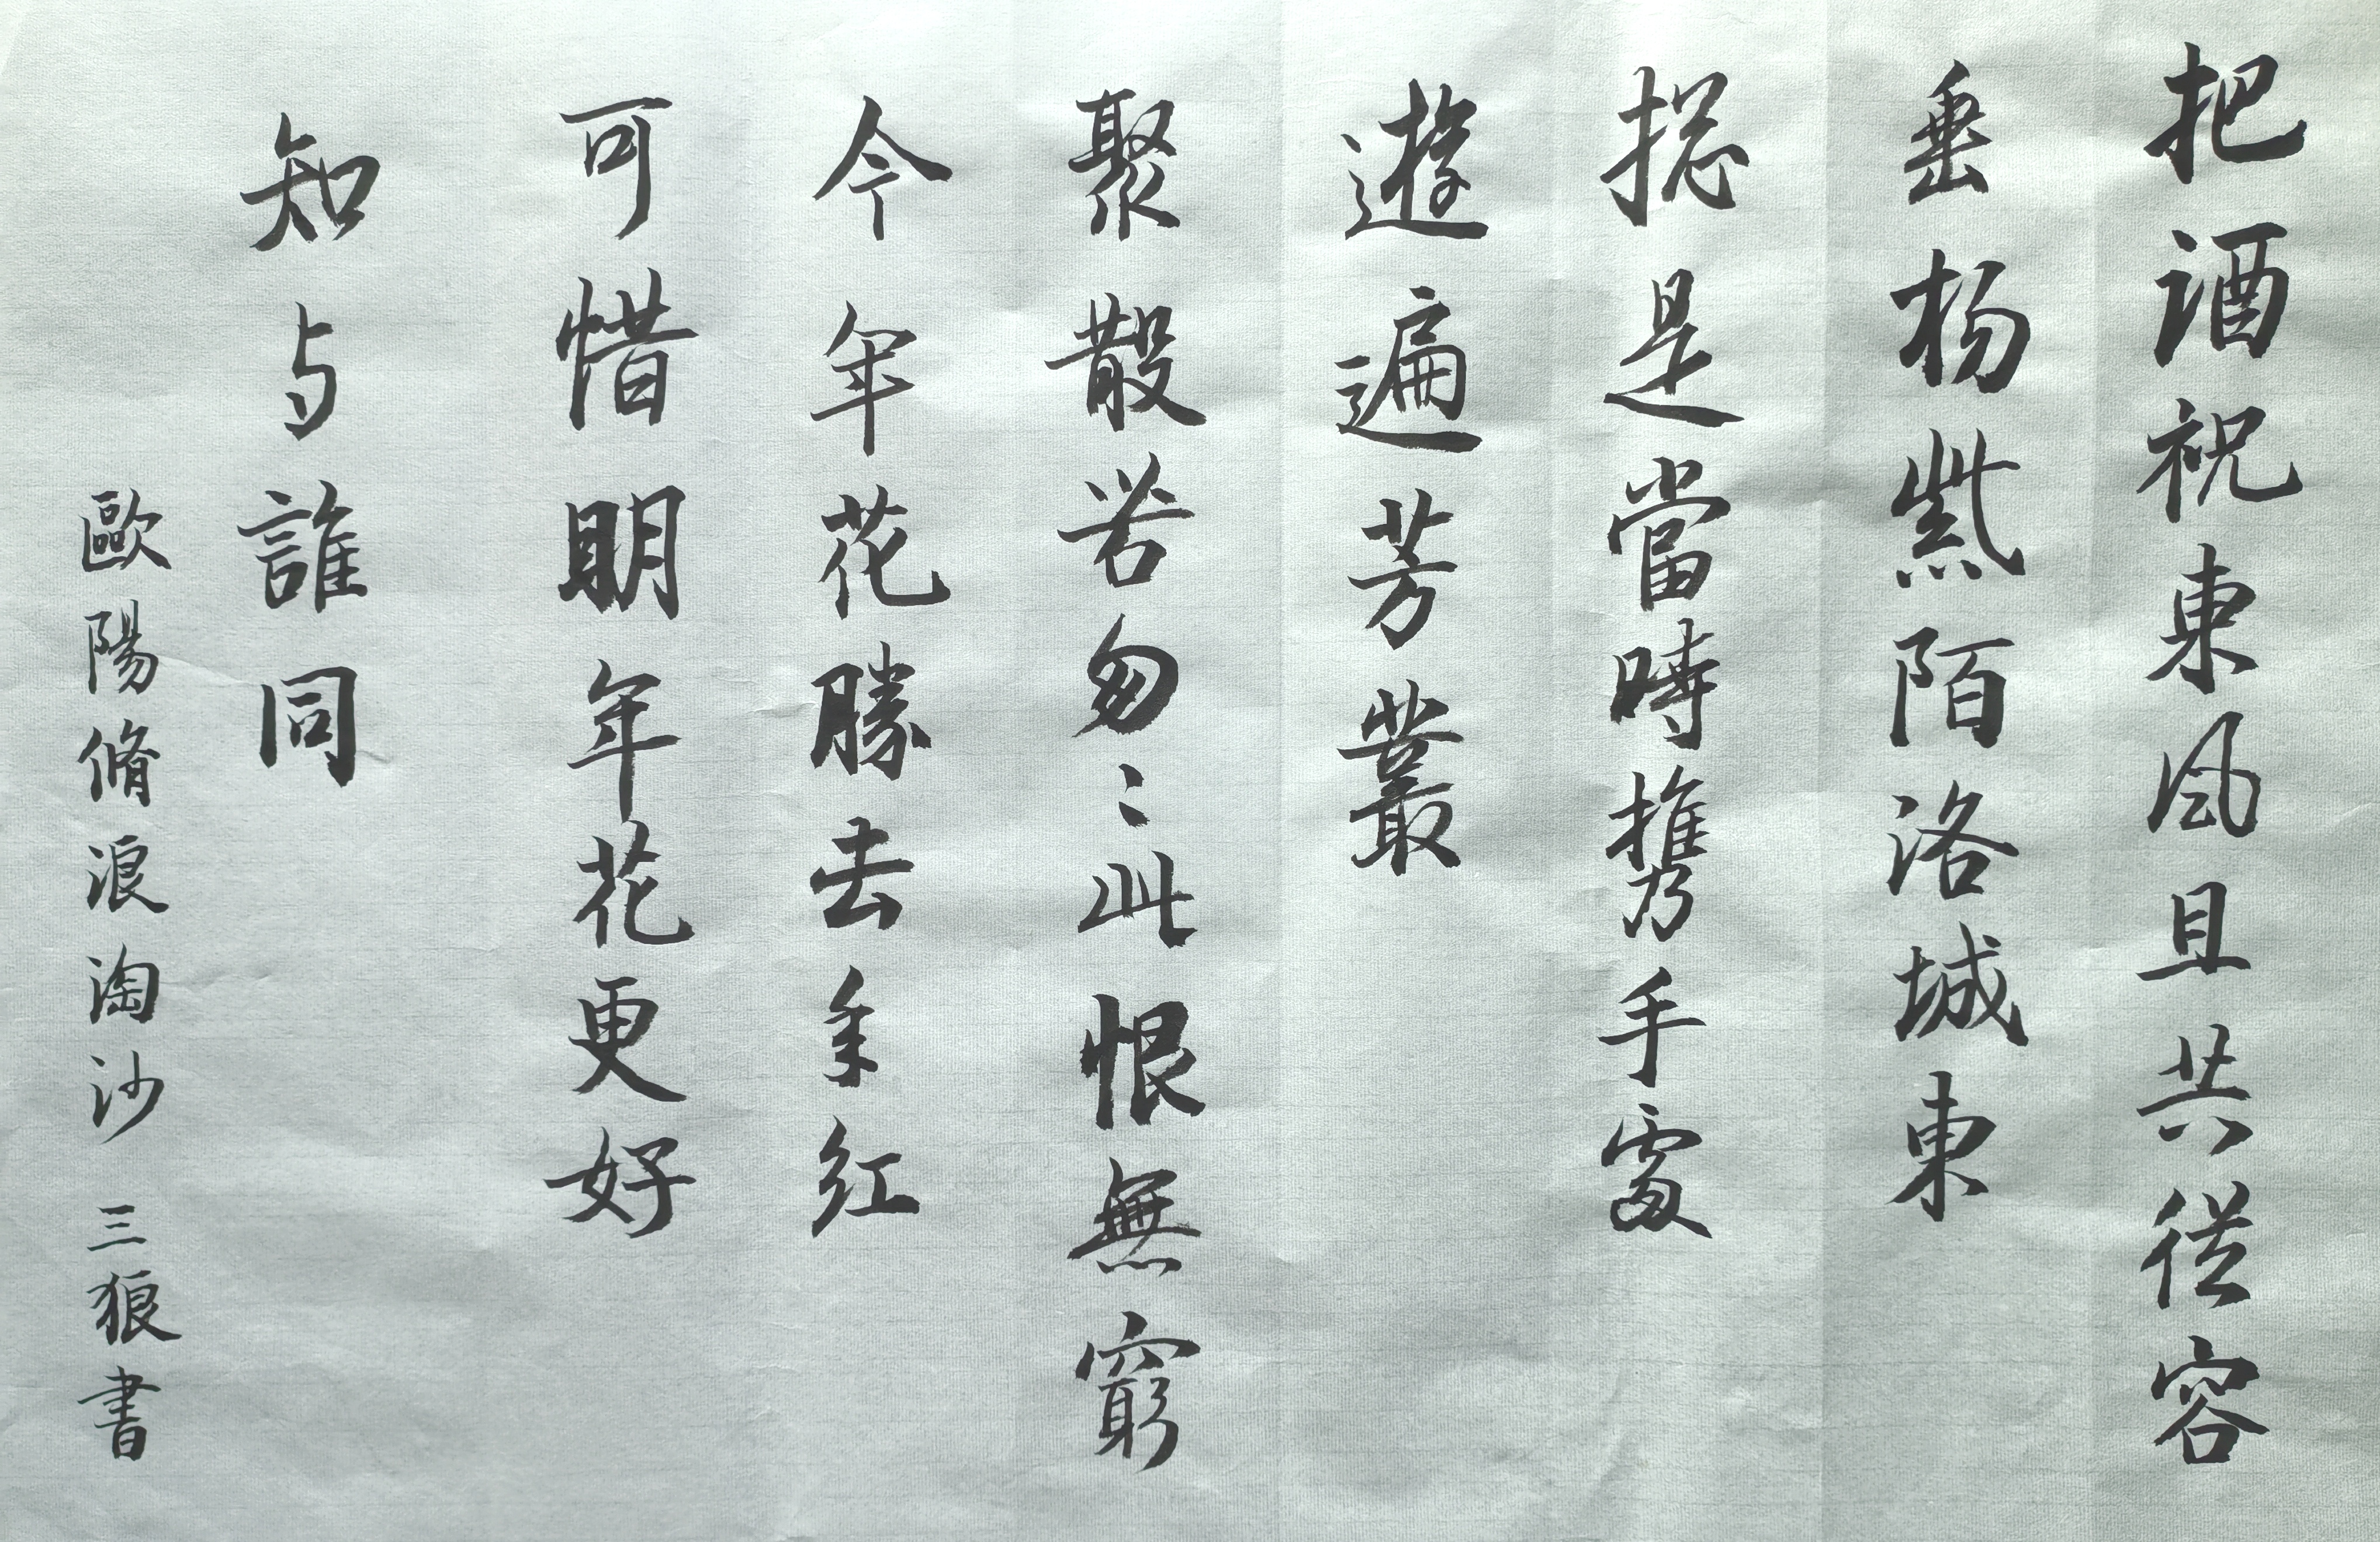 把酒祝東風且共從容
垂杨紫陌洛城東
揔是當時攜手處
遊遍芳叢
聚散苦匆〻此恨無窮
今年花勝去年红
可惜明年花更好
知与誰同
歐陽脩浪淘沙 三狼書